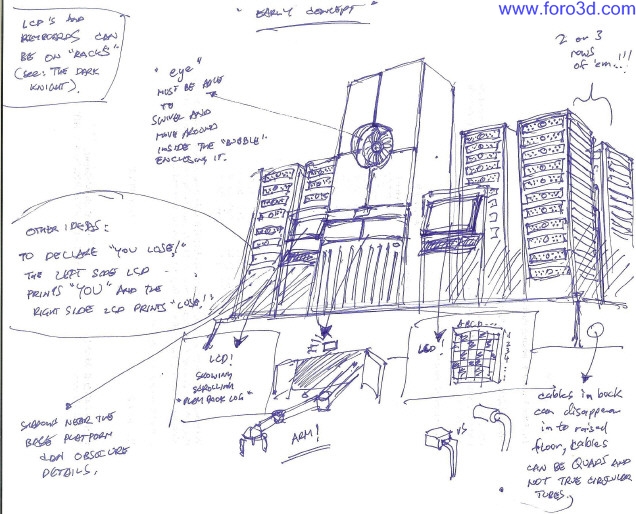 www.foro3d.com
"EARLY CONCEPT"
LCD'S AND
KEYBOARDS CAN
BE ON "RACKS"
(SEE: THE DARK
KNIGHT).
2 or 3
rows
of 'em..!!!
"eye"
MUST BE ABLE
TO
SWIVEL AND
MOVE AROUND
INSIDE THE "BUBBLE"
ENCLOSING IT.
OTHER IDEAS:
TO DECLARE "YOU LOSE!"
THE LEFT SIDE LCD
PRINTS "YOU" AND THE
RIGHT SIDE LCD PRINTS "LOSE!"
LCD!
SHOWING
SCROLLING
"PLAY BACK LOG"
ARM!
LCD!
ABCD...
1
2
3
4
SHADOWS NEAR THE
BASE PLATFORM
CAN OBSCURE
DETAILS.
VS
cables in back
can disappear
in to raised
floor, cables
CAN BE QUADS AND
NOT TRUE CIRCULAR
TUBES.